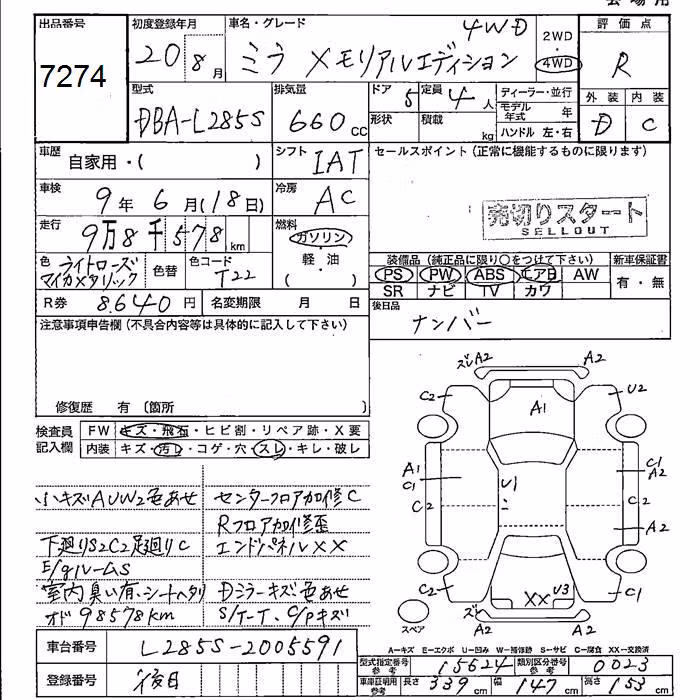 会場用
出品番号
7274
初度登録年月
20 8月
車名・グレード
ミラ Xメモリアルエディション 4WD
2WD
4WD
評価点
R
外装 内装
D C
型式
DBA-L285S
排気量
660cc
ドア 5 定員 4人
形状 積載 kg
ディーラー・並行
モデル年式 年
ハンドル 左・右
車歴 自家用・( )
シフト IAT
セールスポイント(正常に機能するものに限ります)
車検 9年6月(18日)
冷房 AC
売切りスタート
SELLOUT
走行 9万8千578km
燃料 ガソリン
軽・油
( )
色 ライトローズ
マイカメタリック
色替
色コード T22
装備品(純正品に限り○をつけて下さい)
PS PW ABS エアB AW
SR ナビ TV カワ
新車保証書
有・無
R券 8640円 名変期限 月 日
後日品
ナンバー
注意事項申告欄(不具合内容等は具体的に記入して下さい)
修復歴 有〔箇所 〕
検査員
記入欄
FW キズ・飛石・ヒビ割・リペア跡・X要
内装 キズ・汚レ・コゲ・穴・スレ・キレ・破レ
小キズAUW2色あせ
下廻りS2C2足廻りC
E/gルームS
室内臭い有、シートヘタリ
オド98578km
センターフロア加修C
Rフロア加修歪
エンドパネルXX
Dミラーキズ色あせ
S/T-T、C/Pキズ
ズレA2 A2
C2 U2
A1
A1
C1
U1
C1
A2
C2 C2
A2
C2 C1
XX U3
ズレ
A2 A2
スペア
A-キズ E-エクボ U-凹み W-補修跡 S-サビ C-腐食 XX-交換済
車台番号 L285S-2005591
登録番号 後日
型式指定番号
参考
15624
類別区分番号
参考
0023
車庫証明用
参考
長さ 339cm 幅 147cm 高さ 153cm